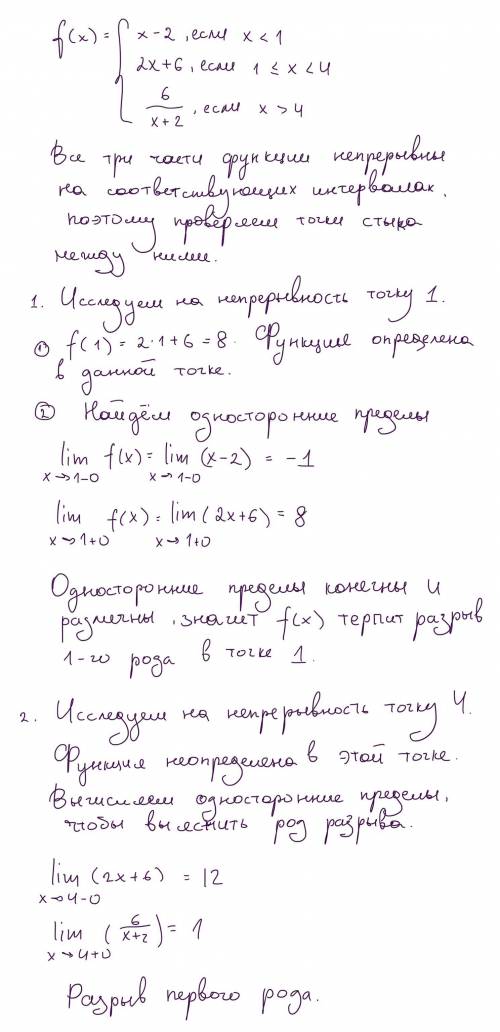 f(x) = { x-2, если x < 1
2x+6, если 1 ≤ x < 4
6/(x+2), если x > 4
Все три части функции непрерывны
на соответствующих интервалах,
поэтому проверяем точки стыка
между ними.
1. Исследуем на непрерывность точку 1.
① f(1) = 2·1+6 = 8. Функция определена
в данной точке.
② Найдём односторонние пределы
lim f(x) = lim (x-2) = -1
x→1-0 x→1-0
lim f(x) = lim (2x+6) = 8
x→1+0 x→1+0
Односторонние пределы конечны и
различны, значит f(x) терпит разрыв
1-го рода в точке 1.
2. Исследуем на непрерывность точку 4.
Функция неопределена в этой точке.
Вычисляем односторонние пределы,
чтобы выяснить род разрыва.
lim (2x+6) = 12
x→4-0
lim (6/(x+2)) = 1
x→4+0
Разрыв первого рода.